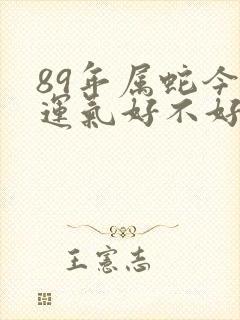 89年属蛇今
運氣好不好
王憲志